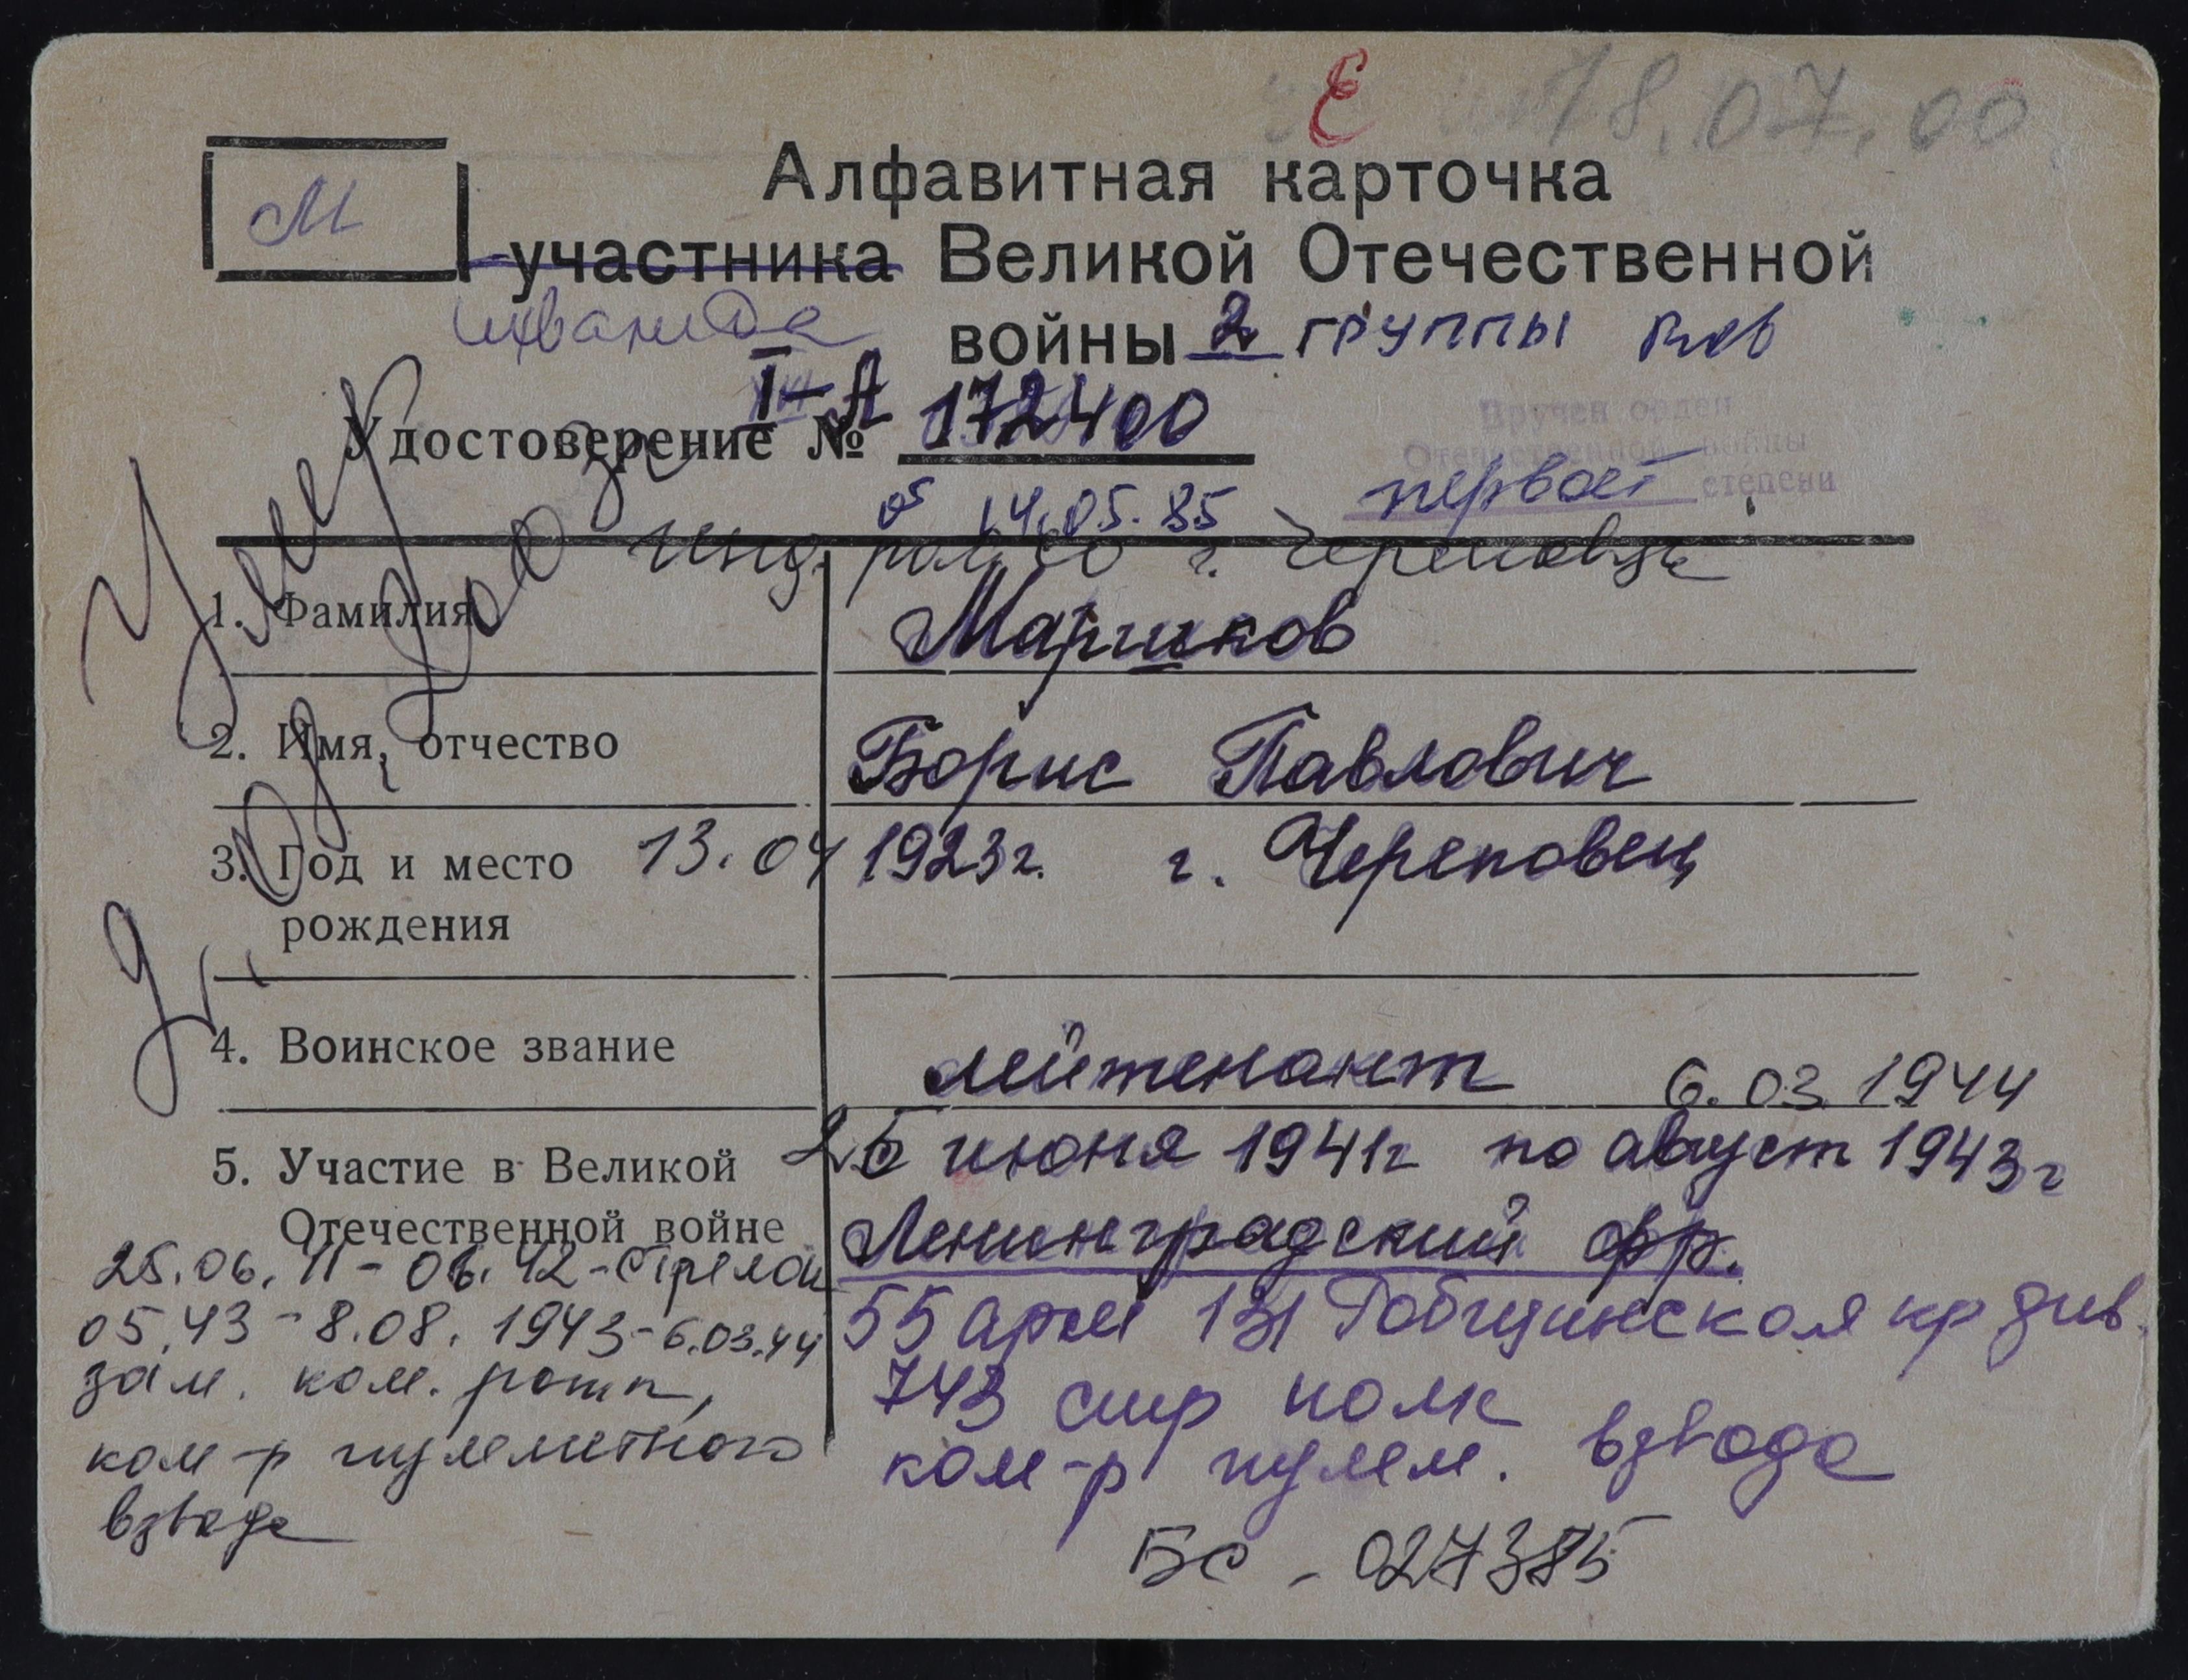 Е 18.07.00
М
Алфавитная карточка
участника Великой Отечественной
инвалида войны 2 группы
I-А
Удостоверение № 172400
Вручен орден
Отечественной войны
первой степени
от 14.05.85
г. Череповца
Умер
1. Фамилия Маришков
2. Имя, отчество Борис Павлович
3. Год и место рождения 13.04 1923г. г. Череповец
4. Воинское звание лейтенант
6.03 1944
5. Участие в Великой Отечественной войне 25 июня 1941г по август 1943г
Ленинградский фр.
25.06.41 - 06.42 - стрелок
55 арм 131 кр див.
05.43 - 8.08.1943 - 6.03.44
743 стр полк
зам. ком. роты,
ком-р пулем. взвода
ком-р пулеметного
взвода
БС - 027385